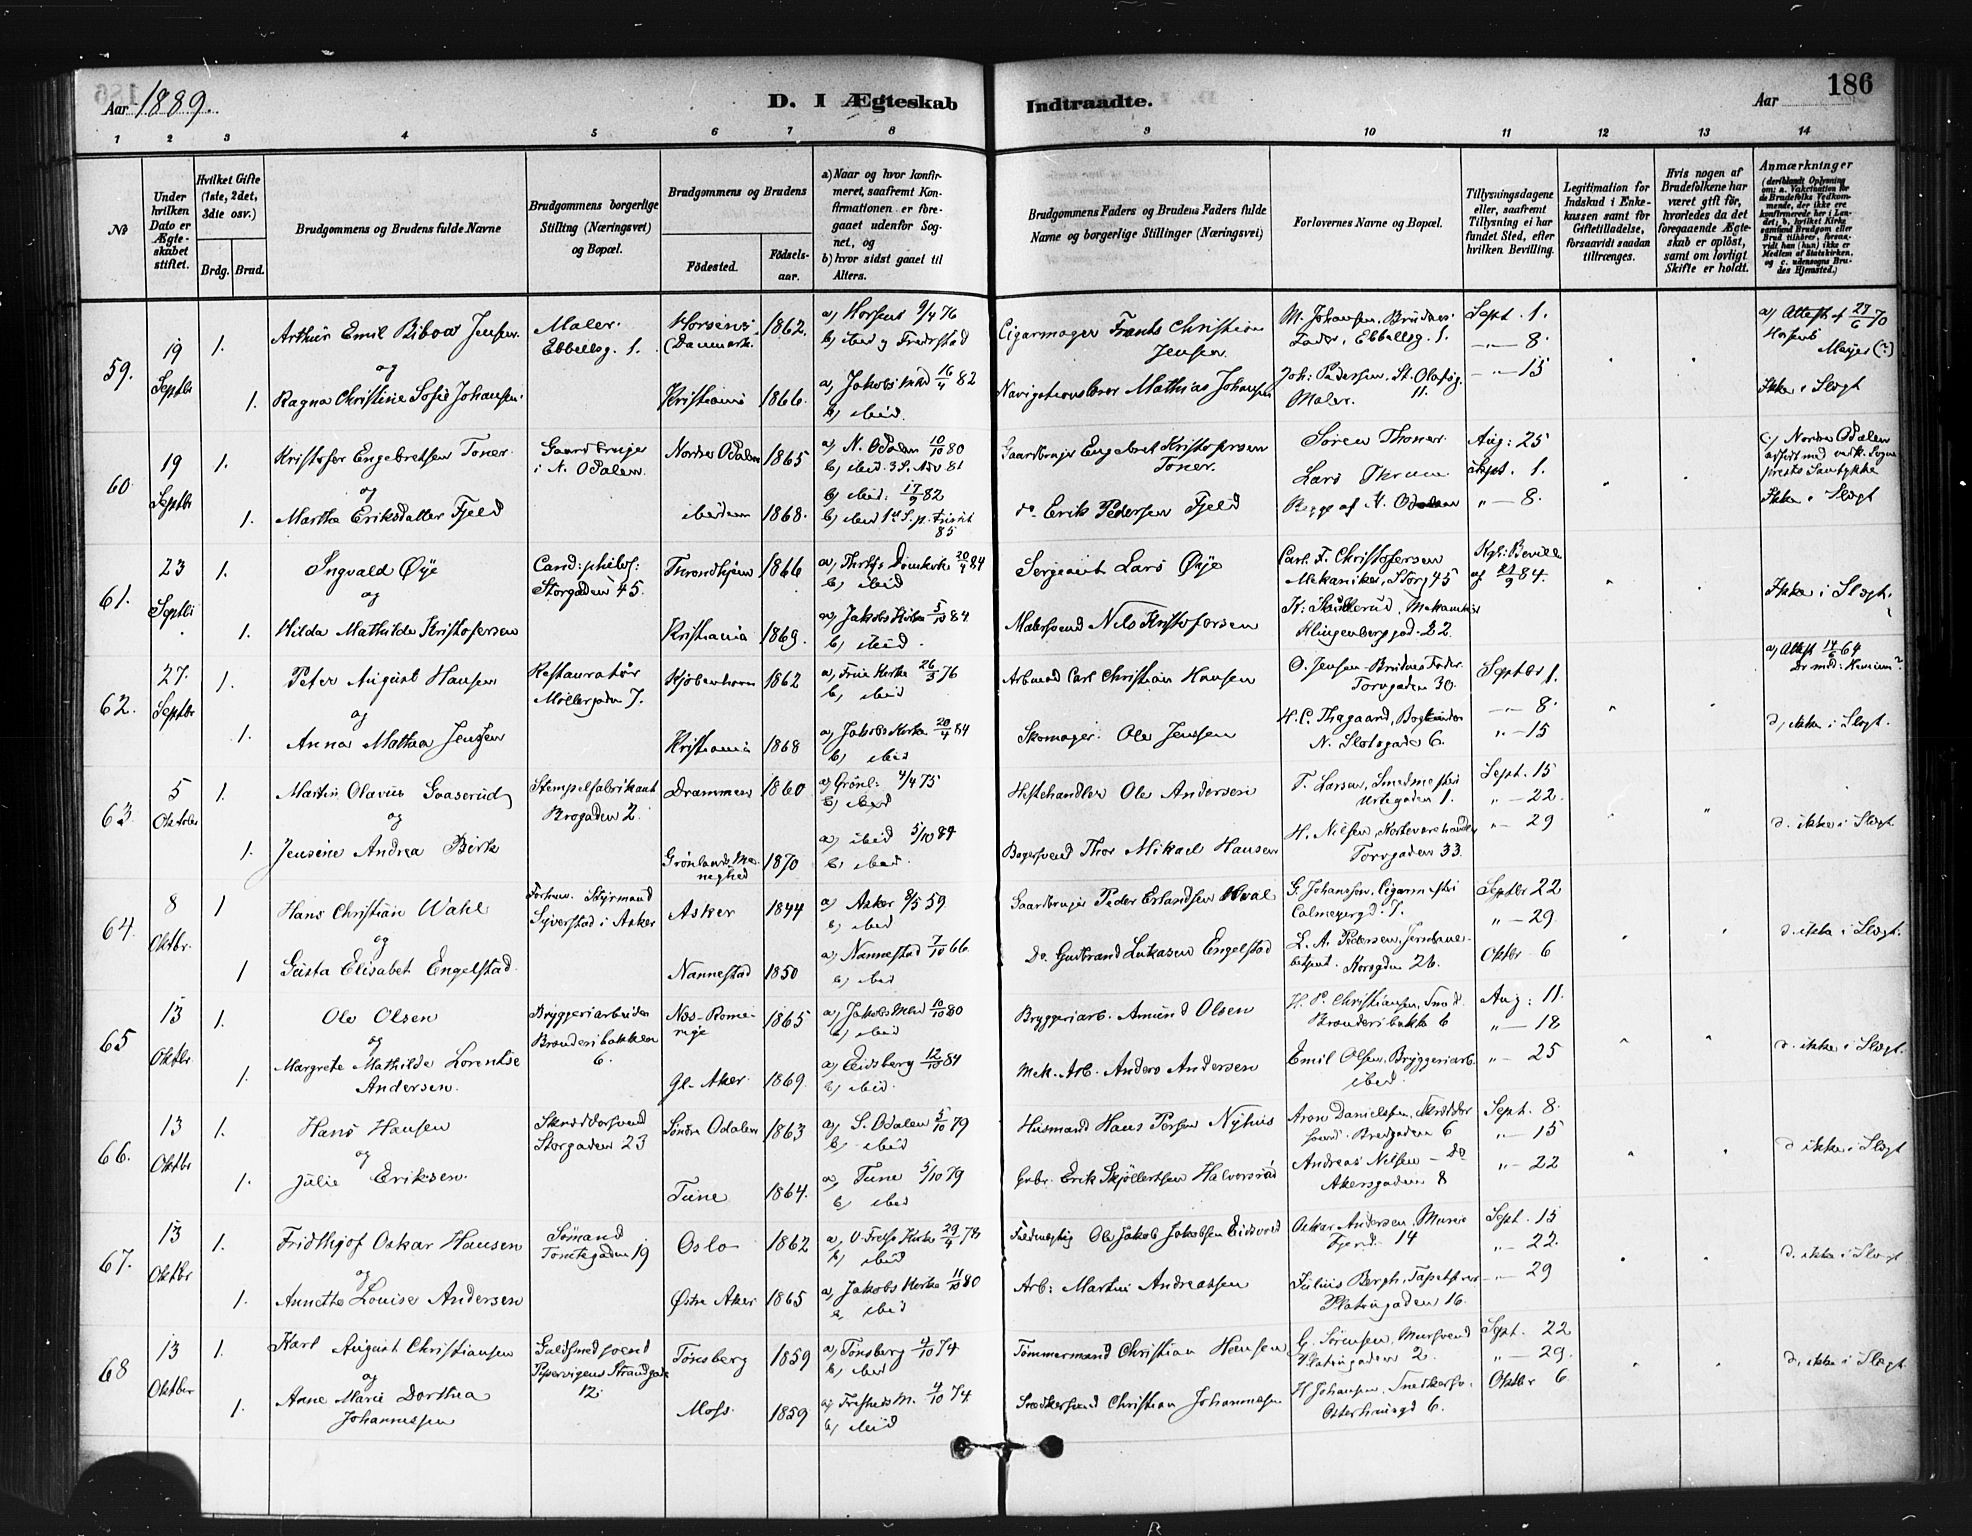 Aar 1889.
D. I Ægteskab
Indtraadte.
Aar
186
1 2 3 4 5 6 7 8 9 10 11 12 13 14
No
Under hvilken Dato er Ægteskabet stiftet.
Hvilket Gifte (1ste, 2det, 3die osv.)
Brdg. Brud.
Brudgommens og Brudens fulde Navne
Brudgommens borgerlige Stilling (Næringsvei) og Bopæl.
Brudgommens og Brudens
Fødested. Fødselsaar.
a) Naar og hvor konfirmeret, saafremt Konfirmationen er foregaaet udenfor Sognet, og
b) hvor sidst gaaet til Alters.
Brudgommens Faders og Brudens Faders fulde Navne og borgerlige Stillinger (Næringsvei)
Forlovernes Navne og Bopæl.
Tillysningsdagene eller, saafremt Tillysning ei har fundet Sted, efter hvilken Bevilling.
Legitimation for Indskud i Enkekassen samt for Giftetilladelse, forsaavidt saadan tiltrænges.
Hvis nogen af Brudefolkene har været gift før, hvorledes da det foregaaende Ægteskab er opløst, samt om lovligt Skifte er holdt.
Anmærkninger
59. 19 Septbr 1. Arthur Emil Jensen Maler. Ebbellsg. 1. Horsens (Danmark. 1862. a) Horsens 9/4 76 Cigarmager Frants Christian Jensen M. Johansen, Brudens Fader, Ebbellsg. 1. Sept. 1.
b) ibid og Fredrstad " 8.
og
1. Ragna Christine Sofie Johansen. Kristiania 1866. a) Jakobs 16/4 82 Mathias Johansen Joh: Pedersen, St. Olafsg. 11. Maler. " 15 Ikke i Slægt
b) ibid.
60. 19 Septbr 1. Kristofer Engebretsen Toner. Gaardbruger i N. Odalen. Nordre Odalen 1865 a) N. Odalen 10/10 80 Gaardbruger Engebret Kristofersen Toner. Søren Thoner. Aug: 25 c) Nordre Odalen
b) ibid 3 S. Adv 81 Lars Sept. 1.
og
1. Marthe Eriksdatter Fjeld ibidem 1868. ibid: 17/9 82 do. Erik Pedersen Fjeld Begge af N. Odalen " 8. Ikke i Slægt
b) ibid 1st S. p. Trinit 85
61. 23 Septbr 1. Ingvald Øye Cand: philos: Storgaden 45. Trondhjem 1866 a) Domkirke 20/4 84 Sergeant Lars Øye Carl F. Christofersen Mekaniker, Storg 45 Kgl: Bevill af 84.
b) ibid
og
1. Hilda Mathilde Kristofersen Kristiania 1869. a) Jakobs Kirke 5/10 84 Malersvend Nils Kristofersen Klingenberggad. 22. Ikke i Slægt.
b) ibid.
62. 27. Septbr 1. Peter August Hansen Restauratør Møllergaden 7. Kjøbenhavn 1862 a) Frue Kirke 26/3 76 Arbmand Carl Christian Hansen O. Jensen Brudens Fader. Torvgaden 30. Septbr 1. a) Attest 64
b) ibid
og
1. Anna Mathea Jensen Kristiania 1868 a) Jakobs Kirke 20/4 84 Skomager. Ole Jensen H. C. Thagaard, Bogbinder N. Slotsgade 6. " 8. " 15 d, ikke i Slægt.
b) ibid
63. 5 Oktober 1. Martin Olavus Gaaserud Stempelfabrikant Brogaden 2. Drammen 1860 a) Grønl: 4/4 75 Hestehandler Ole Andersen T. Larsen, Smedmester Urtegaden 1. Sept. 15 " 22.
b) ibid
og
1. Jensine Andrea Birk Grønlands Menighed 1870 a) ibid 5/10 84 Bagersvend Thor Mikael Hansen H. Nilsen, Kortevarehandler Torvgaden 33. " 29 d. ikke i Slægt
b) ibid.
64. 8 Oktbr. 1 Hans Christian Wahl Forhen. Styrmand Syverstad i Asker Asker 1844 a) Asker 8/5 59 Gaardbruger Peder Erlandsen Hval G. Johansson, Cigarmester Calmeyergd. 7. Septbr 22 " 29.
b) ibid
og
1 Gusta Elisabet Engelstad. Nannestad 1850 a) Nannestad 7/10 66. Do. Gudbrand Lukasen Engelstad L. A. Pedersen, Korsgden 26. Oktbr 6 d. ikke i Slægt.
b) ibid
65 13 Oktbr. 1. Ole Olsen Bryggeriarbeider Brønderibakken 6. Næs-Romerige 1865 a) Jakobs 10/10 80 Bryggeriarb. Amund Olsen H. P. Christiansen, Brønderibakke 6 Aug: 11. " 18
b) ibid
og
1. Margrete Mathilde Lorentse Andersen. Gl. Aker. 1869. a) Eidsberg 12/10 84 Mek. Arb. Anders Andersen Emil Olsen, Bryggeriarb. ibid. " 25 d. ikke i Slægt.
b) ibid.
66. 13 Oktbr 1. Hans Hansen Skræddersvend Storgaden 23 Søndre Odalen 1863 a) S. Odalen 5/10 79 Husmand Hans Persen Nyhus Aron Danielsen, Skrædder Bredgaden 6 Sept. 8. " 15
b) ibid
og
1. Julie Eriksen. Tune 1864. a) Tune 5/10 79 Gbr. Erik Skjöllertsen Halvorsrød Andreas Nilsen - Do Akersgaden 8 " 22 d ikke i Slægt
b) ibid
67. 13 Oktbr 1. Fridthjof Oskar Hansen Sømand Tomtegaden 19 Oslo 1862 a) V. Frels Kirke 29/4 78 Ole Jakob Jakobsen Eidsvold Oskar Andersen, Murer 14 Sept. 15 " 22.
b) ibid
og
1. Annette Louise Andersen Østre Aker 1865 a) Jakobs Kirke 11/10 80 Arb: Martin Andreassen Julius Bergh, Tapetserer Platougaden 16. " 29 d. ikke i Slægt
b) ibid
68 13 Oktber 1. Karl August Christiansen Guldsmedsvend Pipervigens Strandgade 12. Tønsberg 1859 a) Tønsberg 4/10 74 Tømmermand Christian Hansen G. Sørensen, Mursvend Platougaden 2. Sept. 22 " 29.
b) ibid
og
1. Anne Marie Dorthea Johannessen Moss. 1859 a) Frelsers M. 4/10 74. Snedkersvend Christian Johannesen H Johansen, Snedkersv. Osterhausgd 6. Oktber 6. d. ikke i Slægt
b) ibid